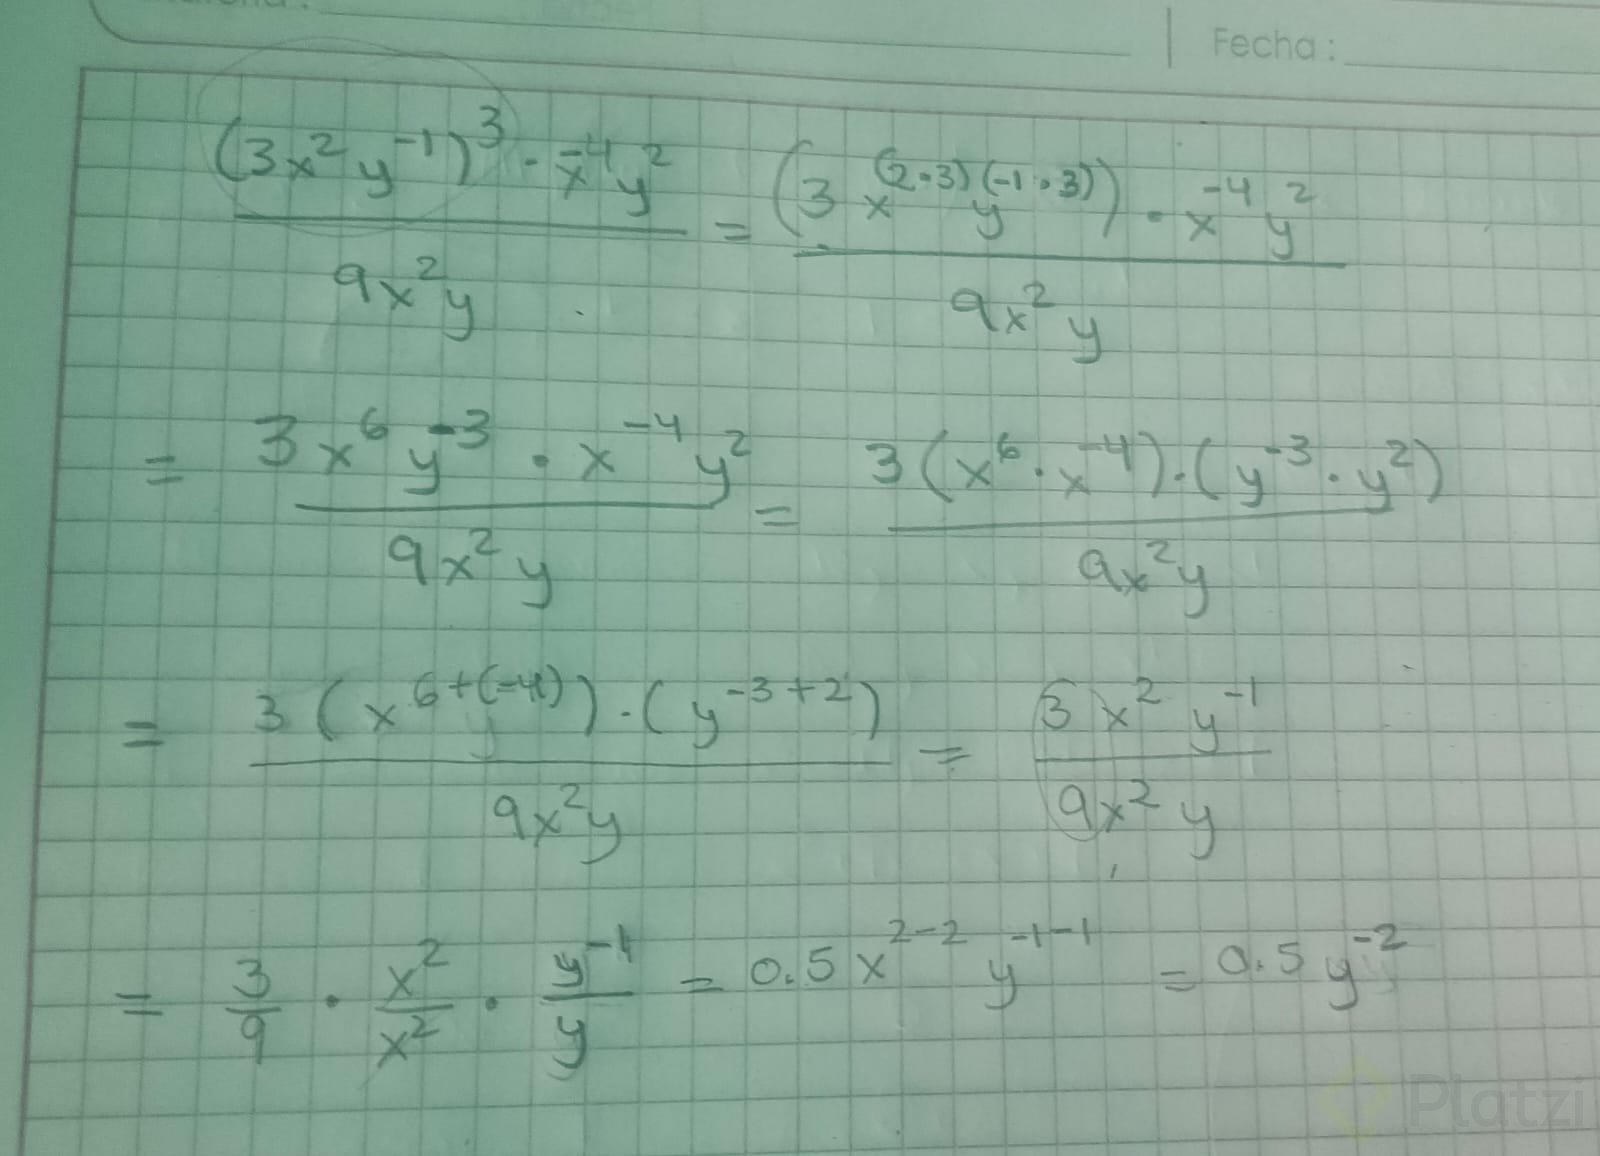 Fecha:
(3x²y⁻¹)³ · x⁻⁴y² / 9x²y = (3x⁽²·³⁾y⁽⁻¹·³⁾) · x⁻⁴y² / 9x²y
= 3x⁶y⁻³ · x⁻⁴y² / 9x²y = 3(x⁶·x⁻⁴)·(y⁻³·y²) / 9x²y
= 3(x⁶⁺⁽⁻⁴⁾)·(y⁻³⁺²) / 9x²y = 3x²y⁻¹ / 9x²y
= 3/9 · x²/x² · y⁻¹/y = 0.5x²⁻²y⁻¹⁻¹ = 0.5y⁻²
Platzi